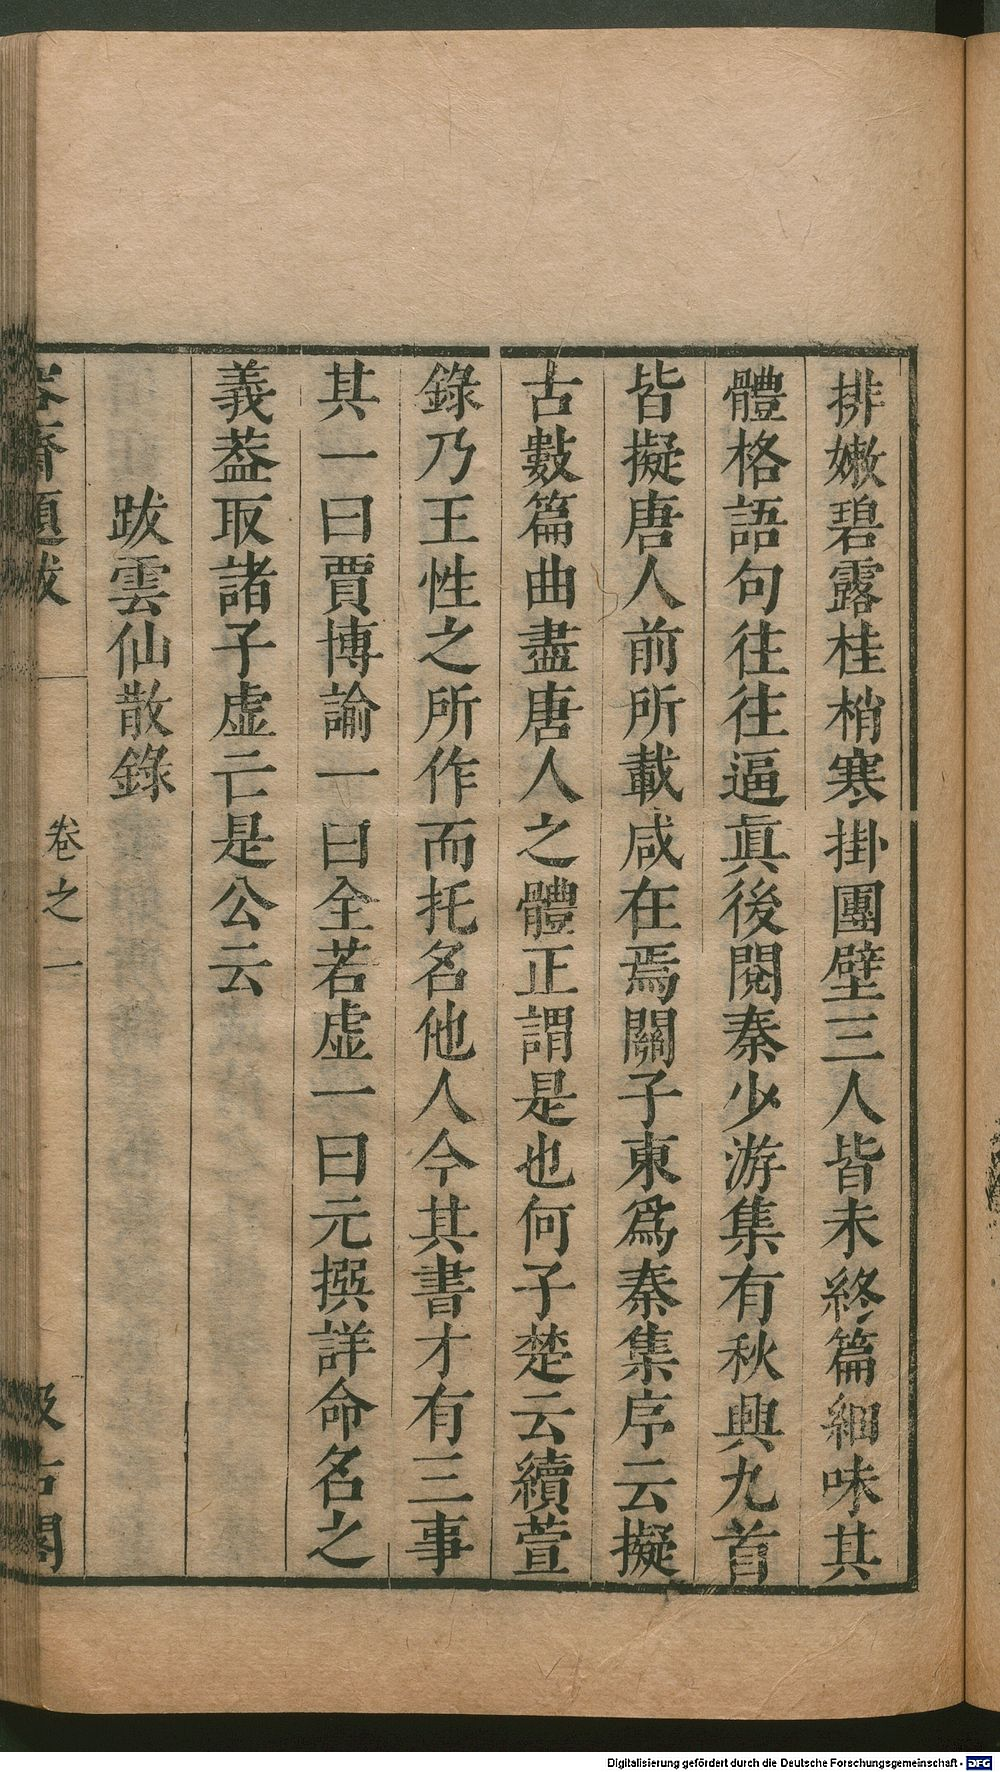 排嫩碧露桂梢寒掛團璧三人皆未終篇細味其
體格語句往往逼眞後閱秦少游集有秋興九首
皆擬唐人前所載咸在焉關子東爲秦集序云擬
古數篇曲盡唐人之體正謂是也何子楚云續萱
錄乃王性之所作而托名他人今其書才有三事
其一曰賈博諭一曰全若虛一曰元撰詳命名之
義葢取諸子虛亾是公云
跋雲仙散錄
容齋題跋 卷之一 汲古閣
Digitalisierung gefördert durch die Deutsche Forschungsgemeinschaft - DFG